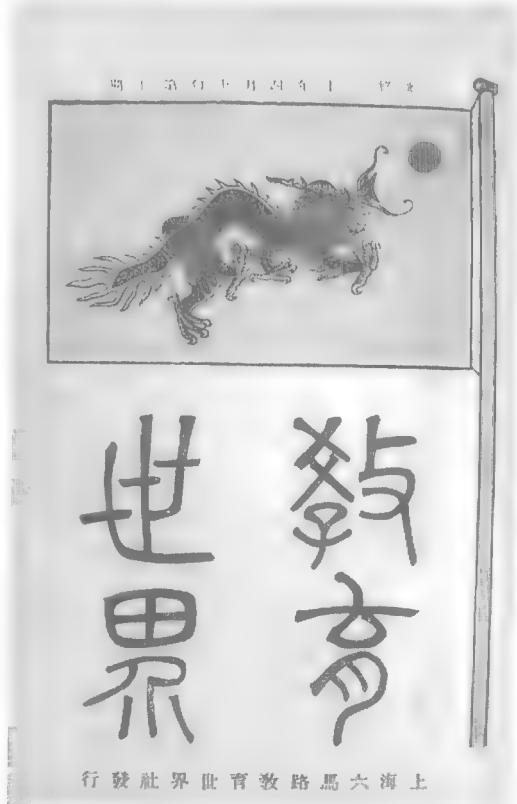 年四月
教育
世界
上海六馬路教育世界社發行